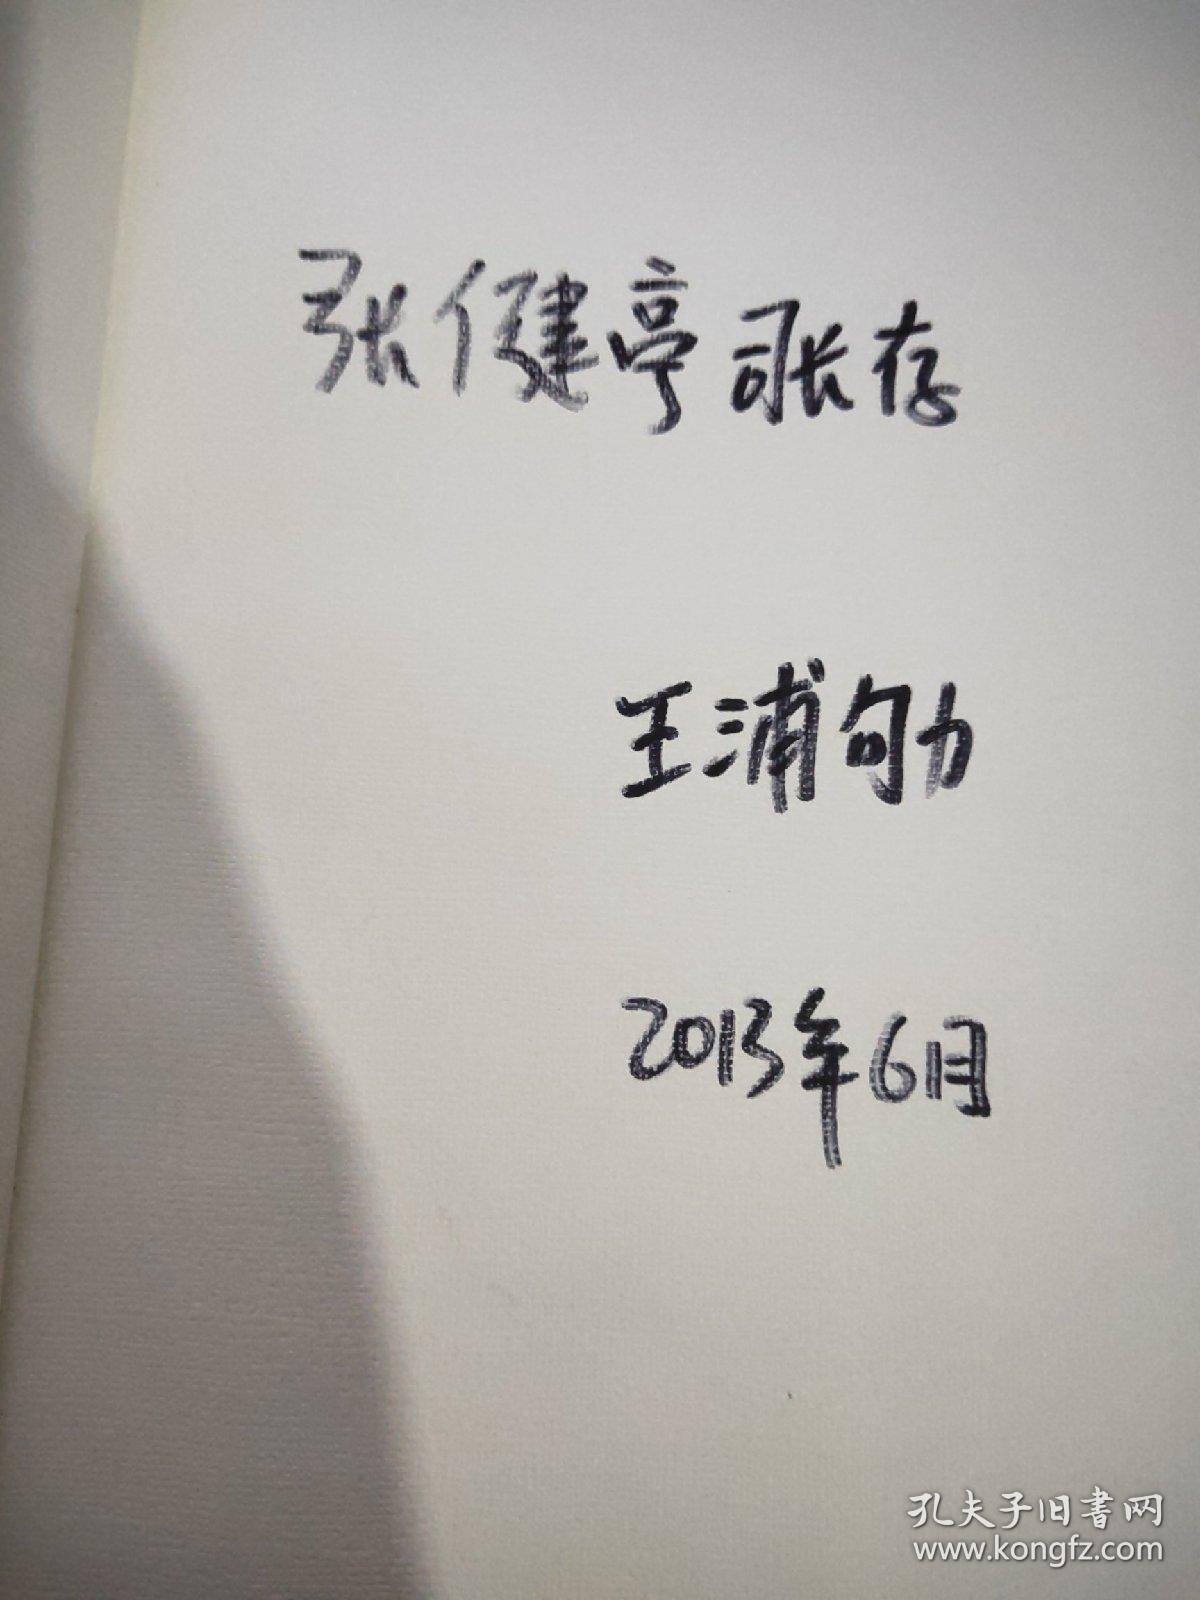 张健亭司长存
王浦劬
2013年6月
孔夫子旧書网
www.kongfz.com